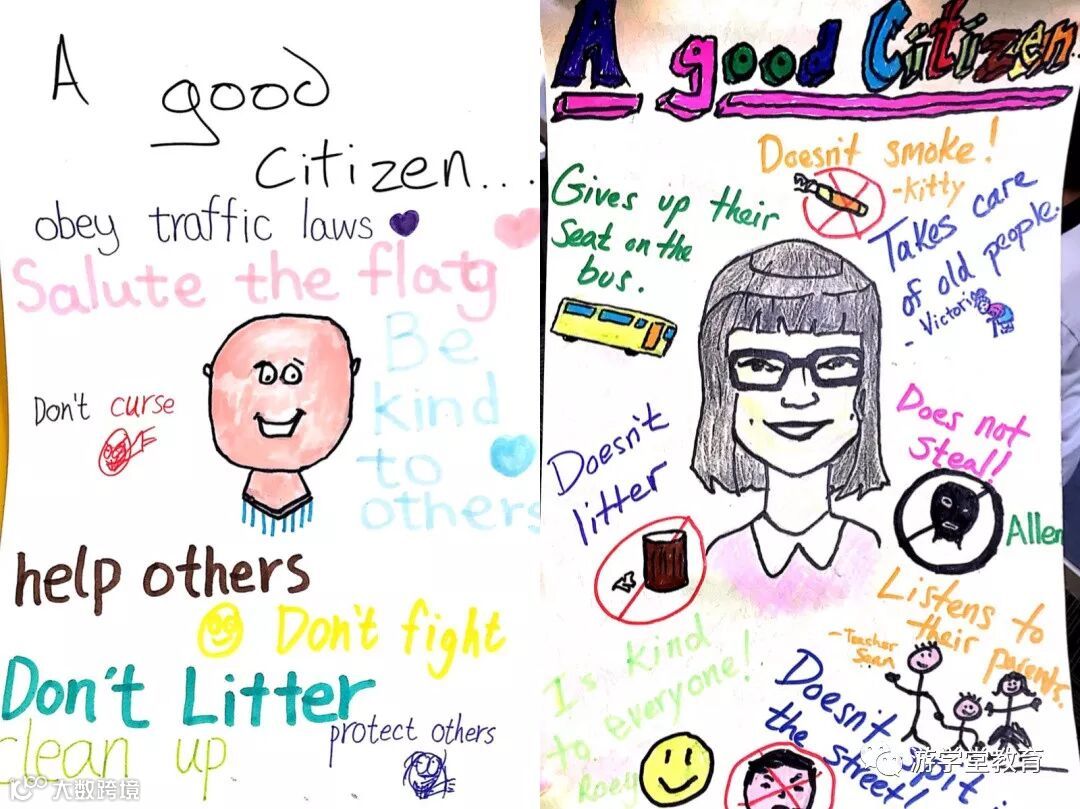 A
good
citizen...
obey traffic laws
Salute the flag
Be
kind
to
others
Don't curse
help others
Don't fight
Don't Litter
clean up
protect others
大数跨境
A good Citizen...
Doesn't smoke!
-Kitty
Gives up their
Seat on the
bus.
Takes care
of old people.
- Victoria
Doesn't
litter
Does not
Steal!
Allen
Listens to
their parents.
-Teacher
Sean
Is kind
to everyone!
Roey
Doesn't
the street!
游学堂教育